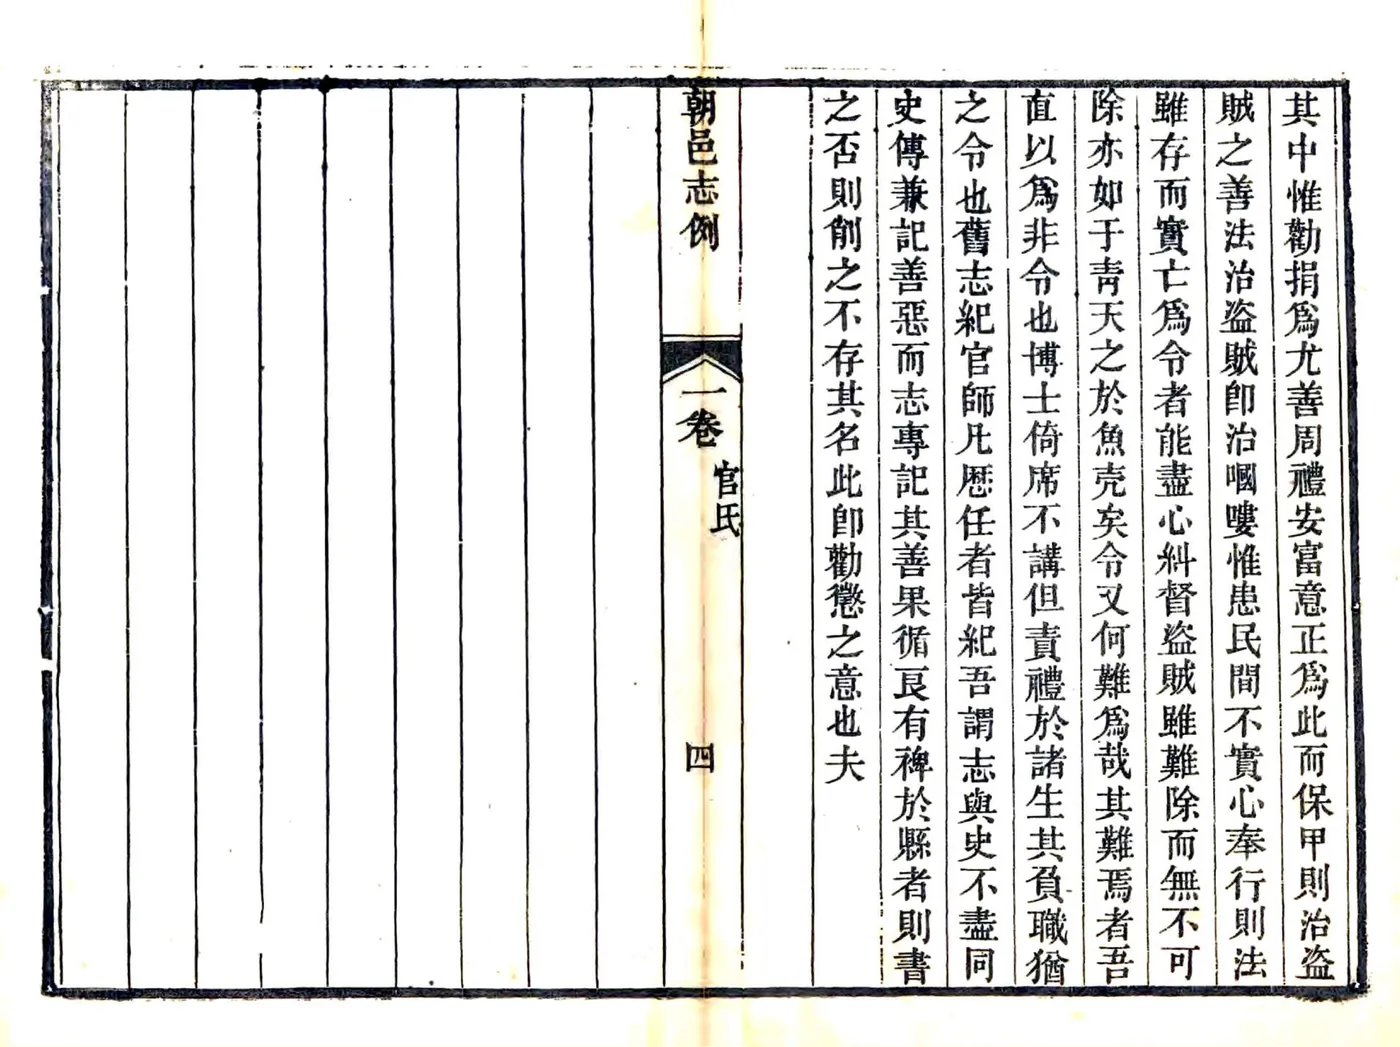 其中惟勸捐爲尤善周禮安富意正爲此而保甲則治盜
賊之善法治盜賊卽治嘓嘍惟患民間不實心奉行則法
雖存而實亡爲令者能盡心糾督盜賊雖難除而無不可
除亦如于靑天之於魚壳矣令又何難爲哉其難焉者吾
直以爲非令也博士倚席不講但責禮於諸生其負職猶
之令也舊志紀官師凡歷任者皆紀吾謂志與史不盡同
史傳兼記善惡而志專記其善果循良有裨於縣者則書
之否則削之不存其名此卽勸懲之意也夫
朝邑志例
一卷
官氏
四